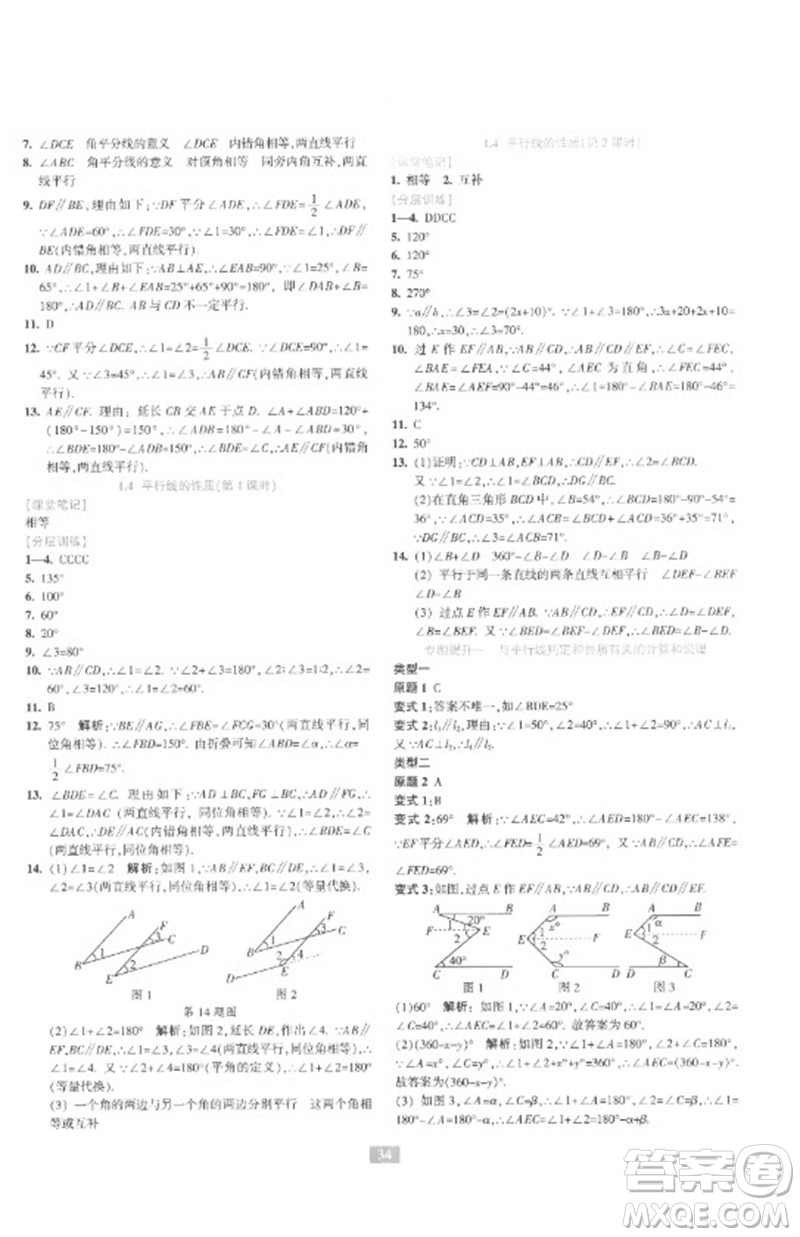 7. ∠DCE 角平分线的意义 ∠DCE 内错角相等,两直线平行
8. ∠ABC 角平分线的意义 对顶角相等 同旁内角互补,两直
线平行
9. DF∥BE,理由如下:∵DF平分∠ADE,∴∠FDE=1/2∠ADE,
∵∠ADE=60°,∴∠FDE=30°,又∵∠1=30°,∴∠FDE=∠1,∴DF∥
BE(内错角相等,两直线平行)
10. AD∥BC,理由如下:∵AB⊥AE,∴∠EAB=90°,∵∠1=25°,∠B=
65°,∴∠1+∠EAB+∠B=25°+90°+65°=180°,即∠DAB+∠B=
180°,∴AD∥BC. AB与CD不一定平行.
11. D
12. ∵CF平分∠DCE,∴∠1=∠2=1/2∠DCE,∵∠DCE=90°,∴∠1=
45°. 又∵∠3=45°,∴∠1=∠3,∴AB∥CF(内错角相等,两直线平
行).
13. AE∥CF. 理由:延长CB交AE于点D. ∠A+∠ABD=120°+
(180°-150°)=150°,∴∠ADB=180°-150°=30°,∴∠BDE=
180°-∠ADB=150°,又∵∠C=150°,∴∠BDE=∠C,∴AE∥CF(内错角
相等,两直线平行)
1.4 平行线的性质(第1课时)
[课堂笔记]
相等
[分层训练]
1—4. CCCC
5. 135°
6. 100°
7. 60°
8. 20°
9. ∠3=80°
10. ∵AB∥CD,∴∠1=∠2. ∵∠2+∠3=180°,∠2∶∠3=1∶2,∴∠2=
60°,∠3=120°,∴∠1=60°.
11. B
12. 75° 解析:∵BE∥AG,∴∠FBE=∠FCG=30°(两直线平行,同
位角相等). ∴∠FBD=150°. 由折叠可知∠ABE=∠α,∴∠α=
1/2∠FBD=75°.
13. ∠BDE=∠C. 理由如下:∵AD⊥BC,FG⊥BC,∴AD∥FG,∴∠1
=∠DAC(两直线平行,同位角相等). 又∵∠1=∠2,∴∠2=
∠DAC,∴DE∥AC(内错角相等,两直线平行),∴∠BDE=∠C
(两直线平行,同位角相等).
14. (1)∠1=∠2 解析:如图1,∵AB∥EF,BC∥DE,∴∠1=∠3,∠2
=∠3(两直线平行,同位角相等),∴∠1=∠2(等量代换).
A F 3 1 C B 2 D E
图1
A F 3 1 C B D 2 4 E
图2
第14题图
(2)∠1+∠2=180° 解析:如图2,延长DE,作出∠4. ∵AB∥
EF,BC∥DE,∴∠1=∠3,∠4=∠3(两直线平行,同位角相等),
∴∠1=∠4. ∵∠2+∠4=180°(平角的定义),∴∠1+∠2=180°
(等量代换).
(3) 一个角的两边与另一个角的两边分别平行 这两个角相
等或互补
1.4 平行线的性质(第2课时)
[课堂笔记]
1. 相等 2. 互补
[分层训练]
1—4. DDCC
5. 120°
6. 120°
7. 75°
8. 270°
9. ∵a∥b,∴∠1=∠2=(2x+10)°. ∵∠1+∠3=180°,∴3x+20+2x+10=
180°,∴x=30,∴∠3=70°.
10. 过E作EF∥AB,∵AB∥CD,∴EF∥CD,∴∠C=∠FEC,
∠BAE=∠FEA,∵∠C=44°,∠AEC=90°,∴∠FEC=44°,
∠BAE=∠FEA=90°-44°=46°,∴∠1=180°-∠BAE=180°-46°=
134°.
11. C
12. 50°
13. (1)证明:∵CD⊥AB,EF⊥AB,∴CD∥EF,∴∠2=∠BCD,
又∵∠1=∠2,∴∠1=∠BCD,∴DG∥BC.
(2)在直角三角形BCD中,∵∠B=54°,∴∠BCD=90°-54°=
36°,又∵∠ACD=35°,∴∠ACB=71°. 又∵由(1)知,BC∥
DG,∴∠3=∠ACB=71°.
14. (1)∠B+∠D 360°-∠B-∠D ∠B-∠D ∠D-∠B
(2) 平行于同一条直线的两条直线互相平行 ∠DEF-∠DEF
∠D-∠B
(3) 过点E作EF∥AB,∵AB∥CD,∴EF∥CD,∴∠DEF=
∠D,∠BEF=∠B,∵∠BED=∠BEF-∠DEF,∴∠BED=∠B-∠D.
专题提升一 与平行线判定和性质有关的计算和说理
类型一
原题1 C
变式1:答案不唯一,如∠BDE=25°
变式2:l₁∥l₂,理由:∵∠1=50°,∠2=40°,∴∠1+∠2=90°,
又∵∠2+∠3=90°,∴∠1=∠3,∴l₁∥l₂.
类型二
原题2 A
变式1:B
变式2:69° 解析:∵∠AEC=42°,∴∠AED=180°-∠AEC=138°,
∵EF平分∠AED,∴∠FED=1/2∠AED=69°,又∵AB∥CD,∴∠AFE=
∠FED=69°.
变式3:如图,过点E作EF∥AB,∵AB∥CD,∴EF∥CD.
A B 20° F E 40° C D
图1
A B E F C D
图2
A B α E F β C D
图3
(1)60° 解析:如图1,∵∠A=20°,∠C=40°,∴∠1=∠A=20°,∠2=
∠C=40°,∴∠AEC=∠1+∠2=60°. 故答案为60°.
(2)(360-x-y)° 解析:如图2,∴∠A+∠1=180°,∠2+∠C=180°,
∵∠A=x°,∠C=y°,∴∠1+∠2+x°+y°=360°,∴∠AEC=(360-x-y)°.
故答案为(360-x-y)°.
(3)如图3,∵∠A=α,∠C=β,∴∠1+∠A=180°,∠2=∠C=β,
∴∠1=180°-∠A=180°-α,∴∠AEC=∠1+∠2=180°-α+β.
34
答案卷